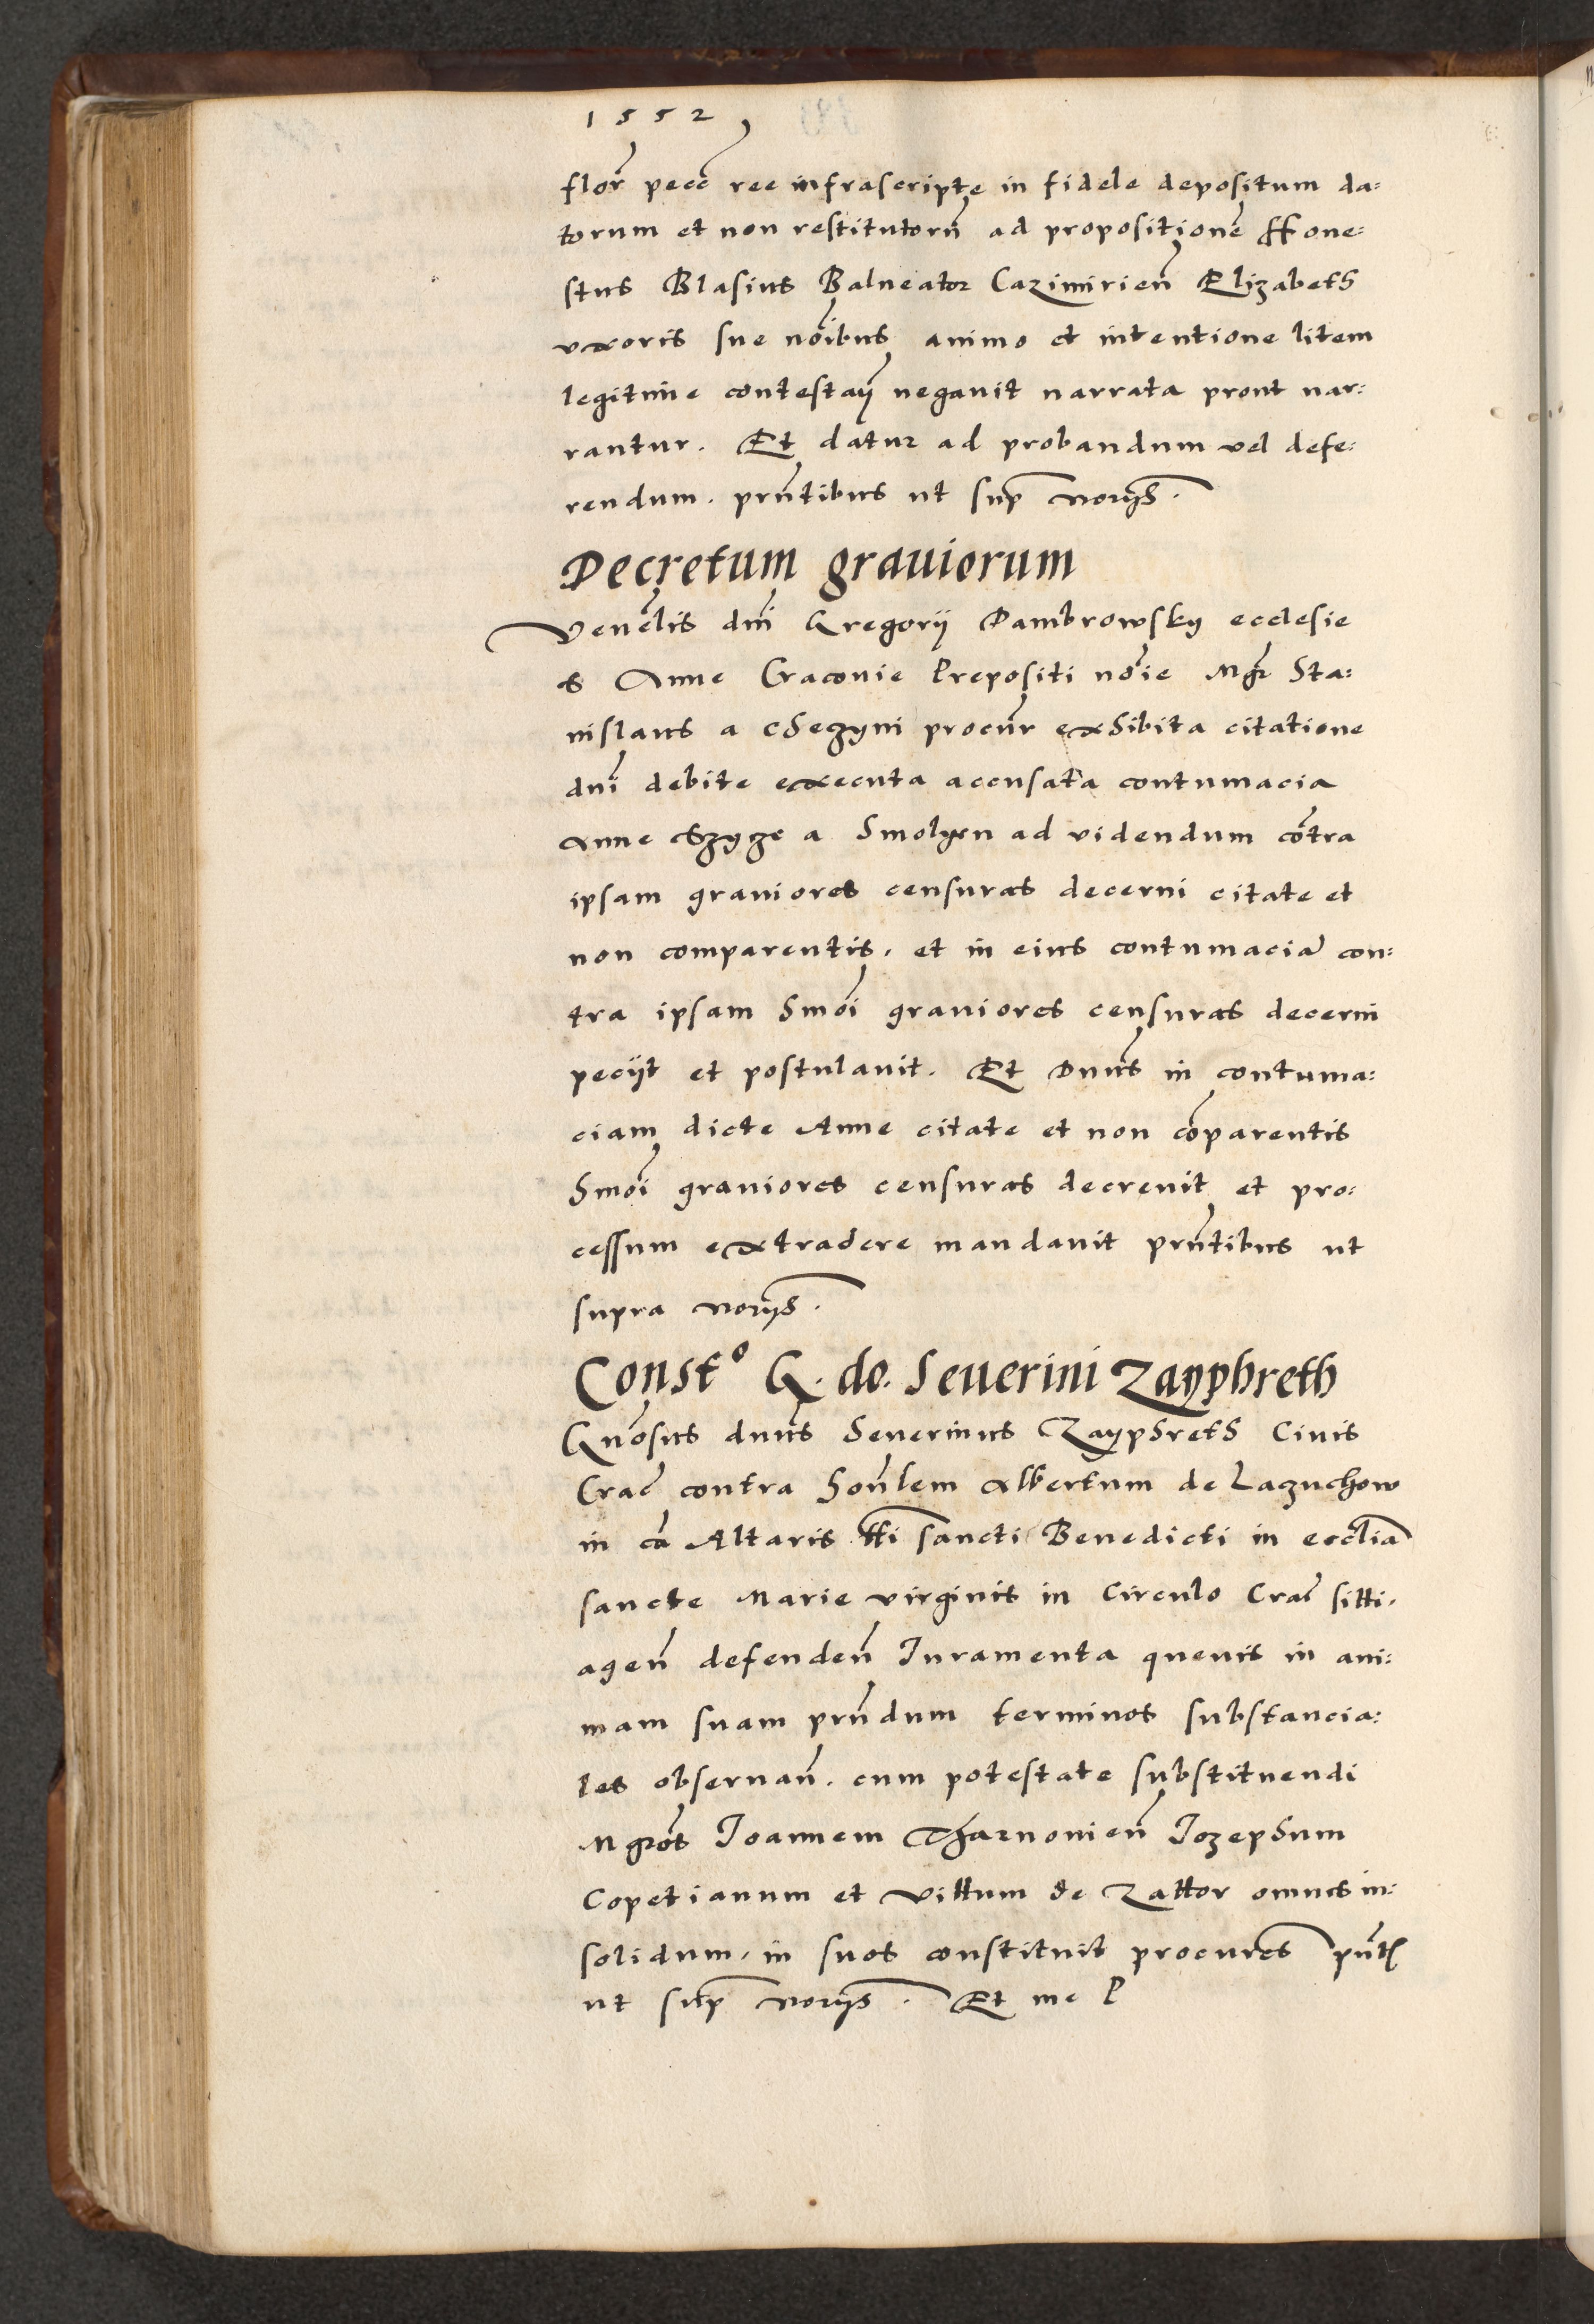 1552
florͬ pecc̄ ree infrascripte in fidele depositum da:
torum et non restitutorū ad propositionē Hone:
stus Blasius Balneator Cazimirien̄ Elizabeth
uxoris sue nōībus animo et intentione litem
legitime contestaȵ negavit narrata prout nar:
rantur. Et datur ad probandum vel defe:
rendum. prn̄tibus ut sup̄ noriis.
Decretum graviorum
Venēlis dnī Gregorij Dambrowsky ecclesie
S Anne Cracovie Prepositi nōīe Mgr̄ Sta:
nislaus a chezyni procūr exhibita citatione
dnī debite executa accusata contumacia
Anne a Smolyen ad videndum cōtra
ipsam graviores censuras decerni citate et
non comparentis. et in eius contumaciā con:
tra ipsam hmōi graviores censuras decerni
peciit et postulavit. Et Dnūs in contuma:
ciam dicte Anne citate et non cōparentis
hmōi graviores censuras decrevit et pro:
cessum extradere mandavit prn̄tibus ut
supra noriis.
Const° G. do. Severini Zayphreth
Gnōsus dnūs Severinus Zayphreth Civis
Crac̄ contra honl̄em Albertum de Lazuchow
in cā Altaris tti sancti Benedicti in eccliā
sancte Marie virginis in Circulo Crac̄ sitti.
agen̄ defenden̄ Iuramenta quevis in ani:
mam suam prn̄dum terminos substancia:
les observan̄. cum potestate substituendi
Mgrōs Joannem Tharnovien̄ Jozephum
Copetianum et Vittum de Zattor omnes in:
solidum. in suos constituit procures pn̄tƚ
ut sup̄ noriis. Et me P